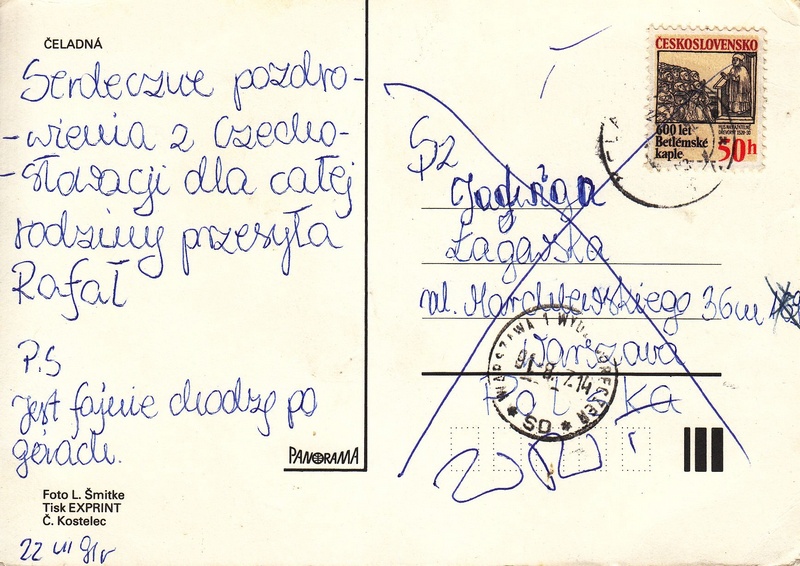 ČELADNÁ
Serdeczne pozdro-
-wienia z Czecho-
-Słowacji dla całej
rodziny przesyła
Rafał
P.S
Jest fajnie chodzę po
górach.
PANORAMA
Foto L. Šmitke
Tisk EXPRINT
Č. Kostelec
22 VII 91r
ČESKOSLOVENSKO
600 let
Betlémské
kaple
50h
Sz
Jadwiga
Łagaska
ul. Mordu 36m
Warszawa
Polska
WARSZAWA 1
91-8.-7.14